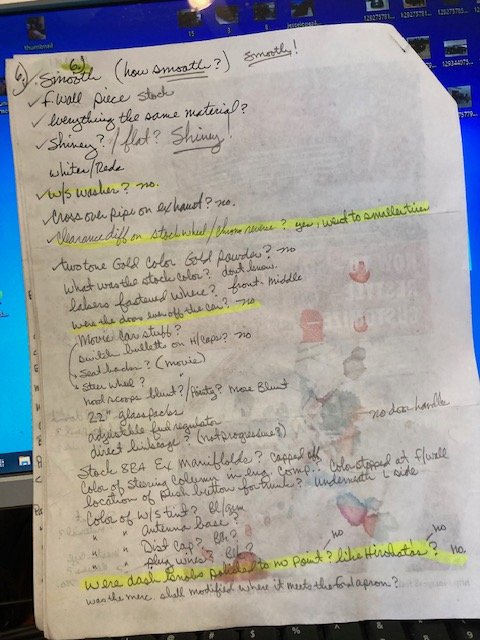 thumbnail
15
3
jesselenea24
129275781...
129344075...
6.) 6.) Smooth (how smooth?) Smooth!
✓ f.wall piece stock
✓ everything the same material?
✓ Shiney? / flat? Shiney!
white/Reds
✓ W/S washer? no.
✓ Cross over pipe on exhaust? no.
✓ Clearance diff on stock wheel / chrome reverse? yes, went to smaller tires
✓ two tone Gold Color Gold powder? no
What was the stock color? don't know.
lakers fastened where? front. middle
were the doors ever off the car? no
Movie car stuff?
Switch bulletts on H/caps? no
Seat backs? (movie)
Steer wheel? "
hood scoops blunt? / Pointy? More Blunt
22" glasspacks
adjustable fuel regulator
direct linkage? (not progressive?)
no door handle
Stock 8BA Ex Manifolds? capped off
Color of steering column in eng. comp.: Color stopped at f/wall
location of push button for trunk? underneath L side
Color of W/S tint? Bl/grn
" " Antenna base?
" " Dist Cap? blk?
" " Plug wires? blk?
no no
were dash knobs polished to no point? like Hirohata? no
was the merc. shell modified where it meets the ford apron?